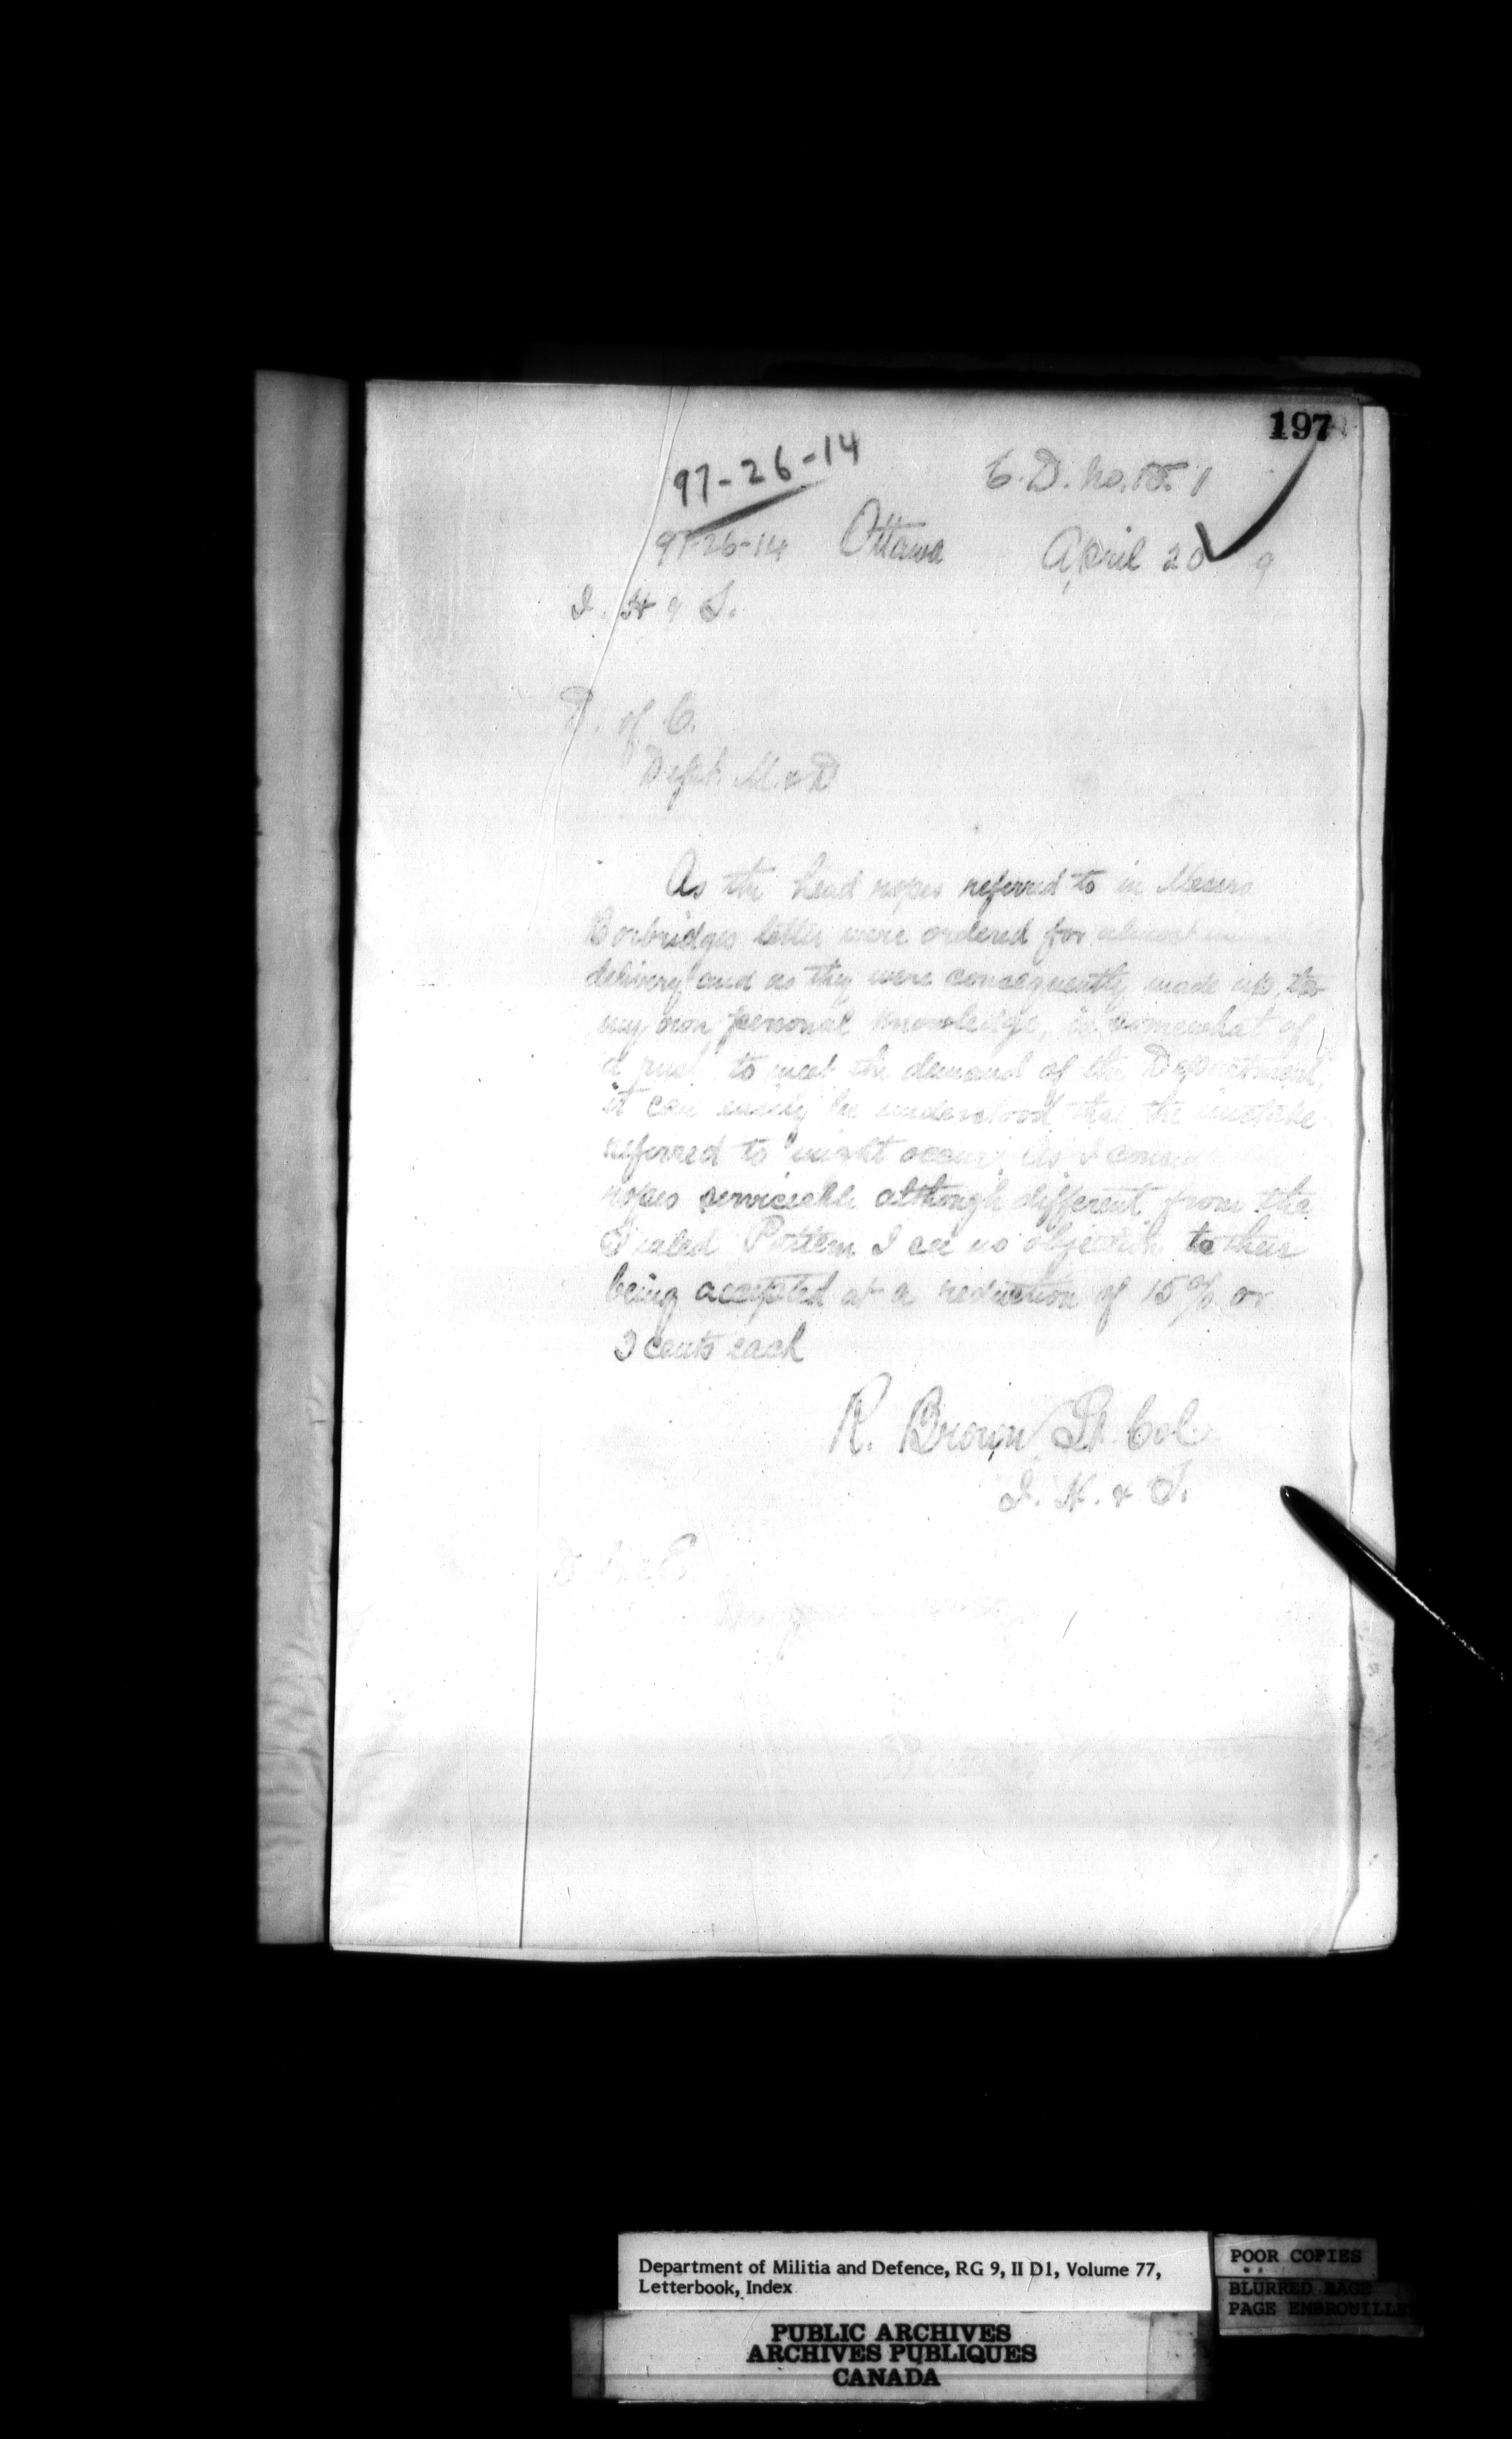 197
97-26-14
C.D. No. 1
97-26-14 Ottawa April 20 9
I. H & S.
D. of C.
Dept. M. & D
As the head ropes referred to in Messrs
Borbridges letter were ordered for almost
delivery and as they were consequently made up, to
my own personal knowledge, in somewhat of
a rush to meet the demand of the Department
it can easily be understood that the mistake
referred to might occur. As I
ropes serviceable although different from the
Sealed Pattern I see no objection to their
being accepted at a reduction of 15% or
cents each
R. Brown Lt Col
Department of Militia and Defence, RG 9, II D1, Volume 77,
Letterbook, Index
POOR COPIES
BLURRED PAGE
PAGE EMBROUILLE
PUBLIC ARCHIVES
ARCHIVES PUBLIQUES
CANADA